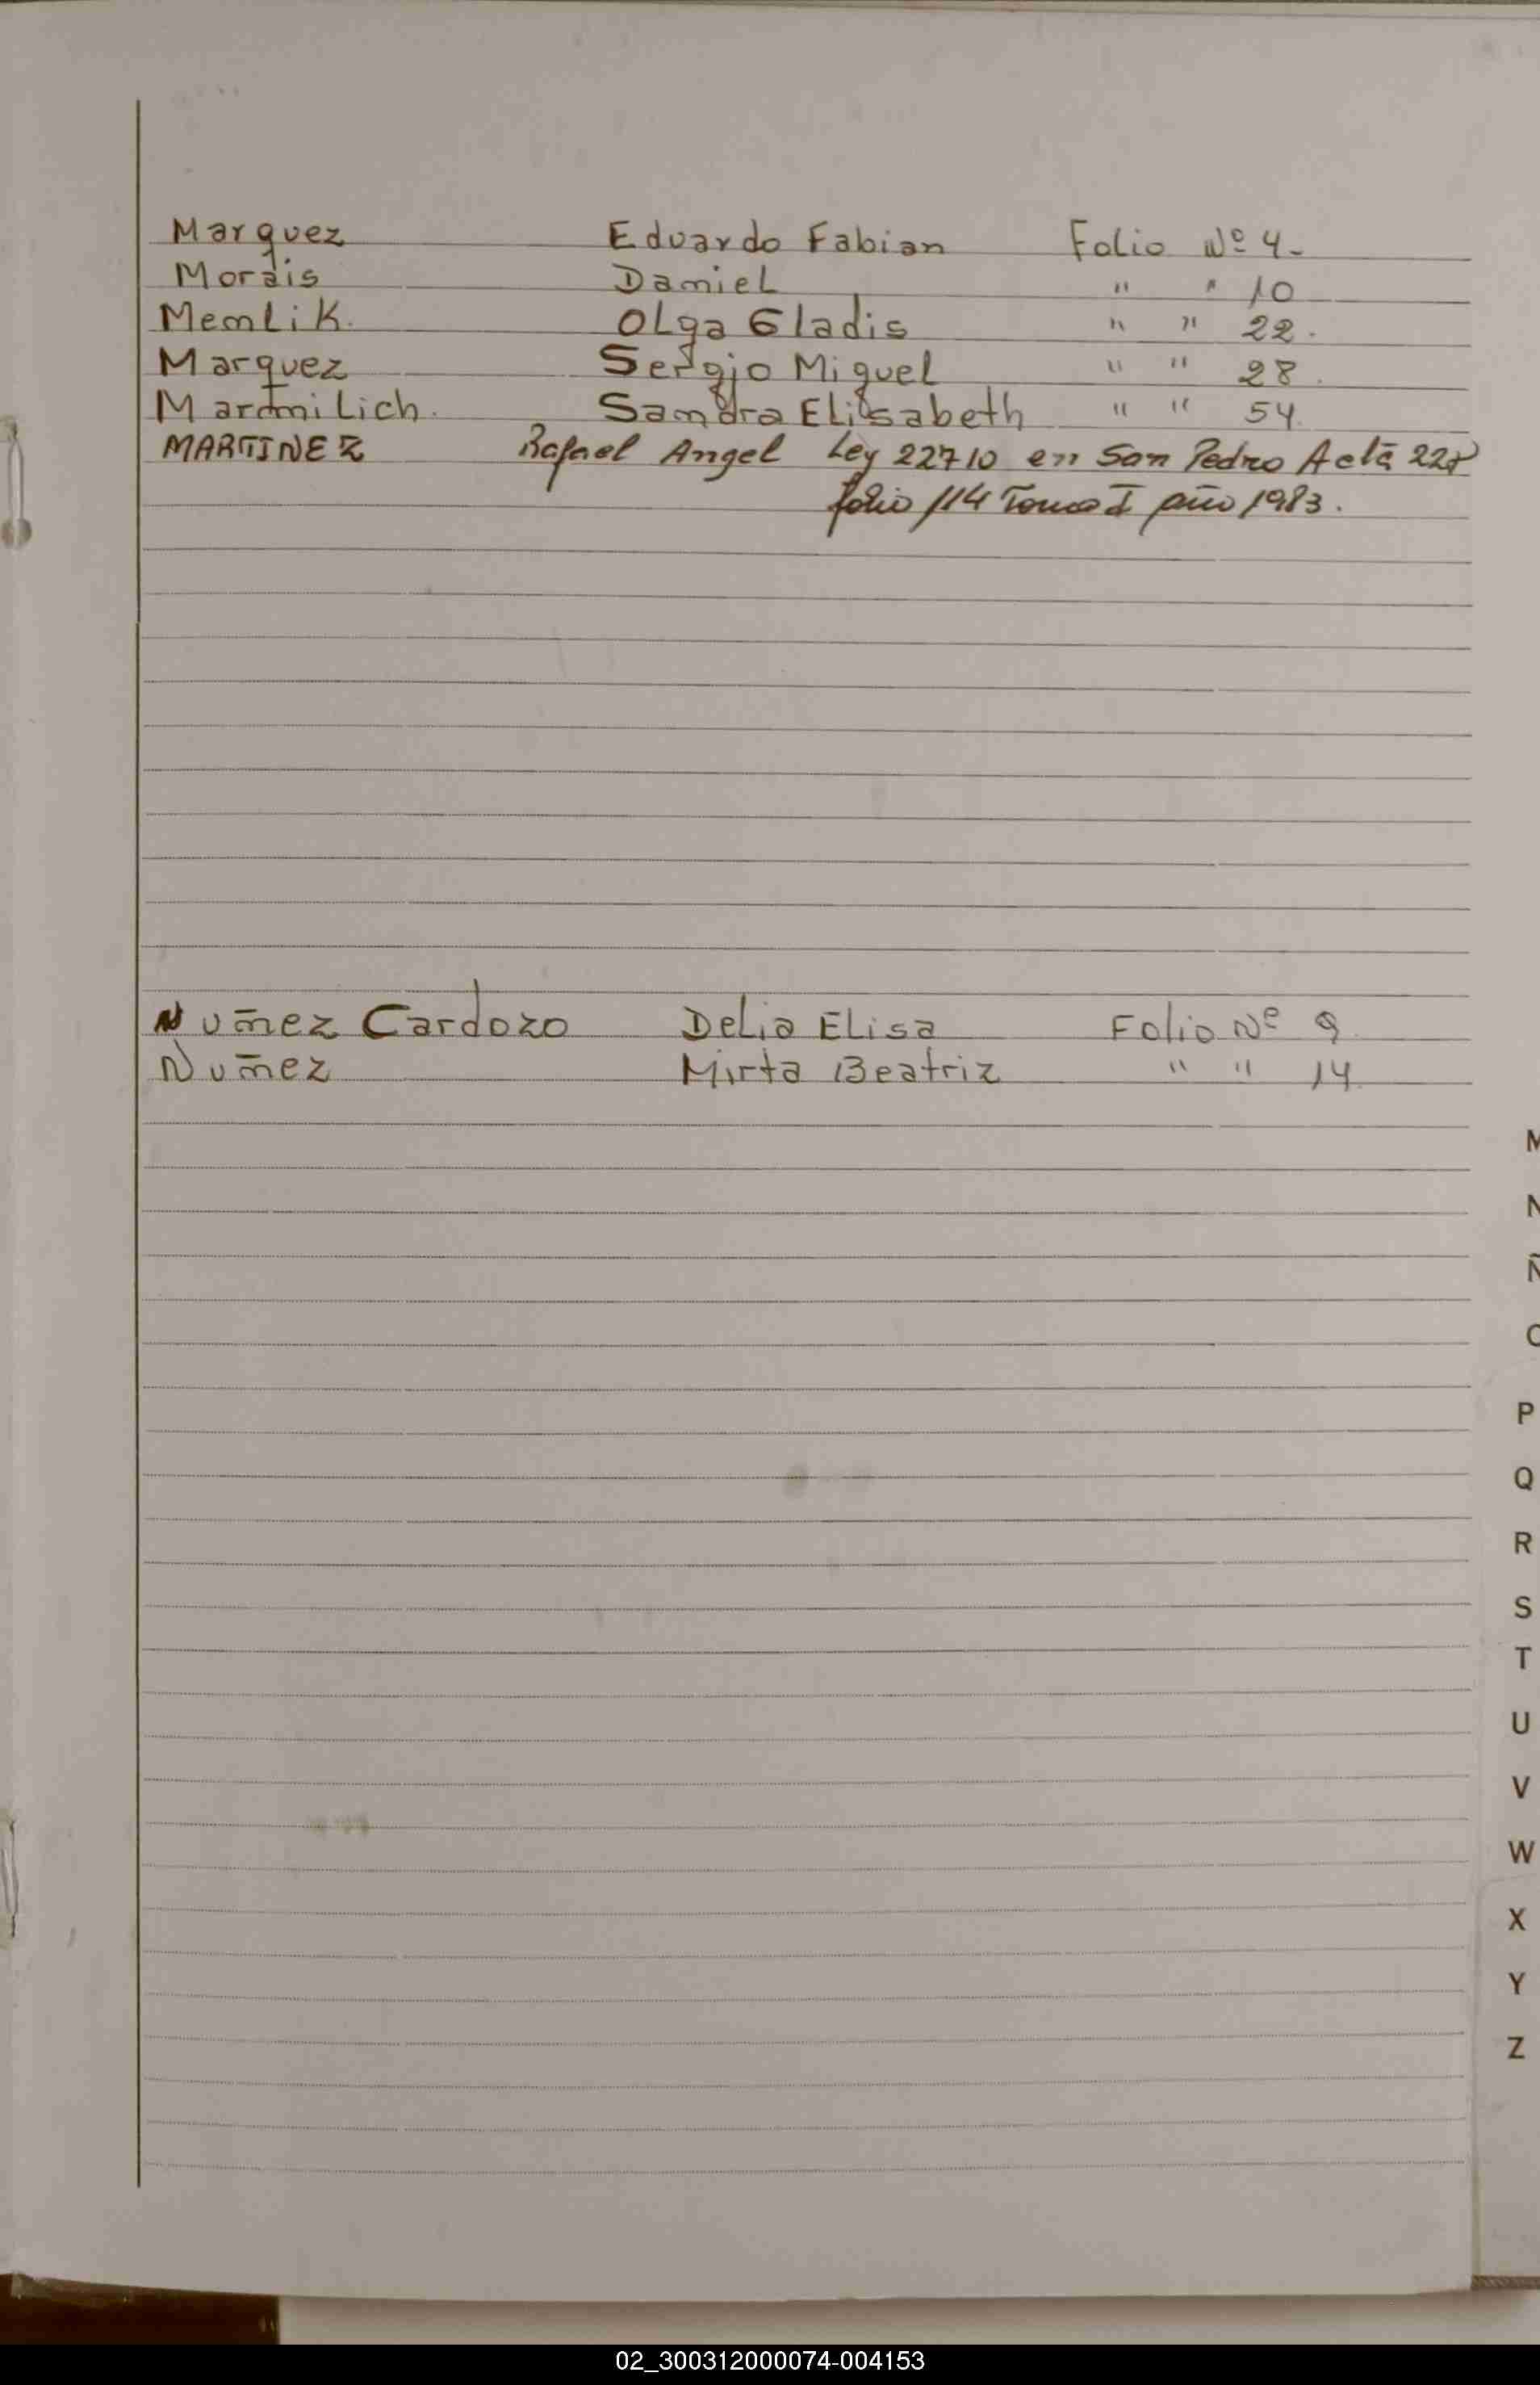 Marquez Eduardo Fabian Folio Nº 4-
Morais Daniel " " 10
Memlik. Olga Gladis " " 22.
Marquez Sergio Miguel " " 28.
Sandra Elisabeth " " 54.
MARTINEZ Rafael Angel Ley 22710 en San Pedro Acta
folio 114 Tomo I año 1983.
Nuñez Cardozo Delia Elisa Folio Nº 9
Nuñez Mirta Beatriz " " 14
M
N
Ñ
O
P
Q
R
S
T
U
V
W
X
Y
Z
02_300312000074-004153